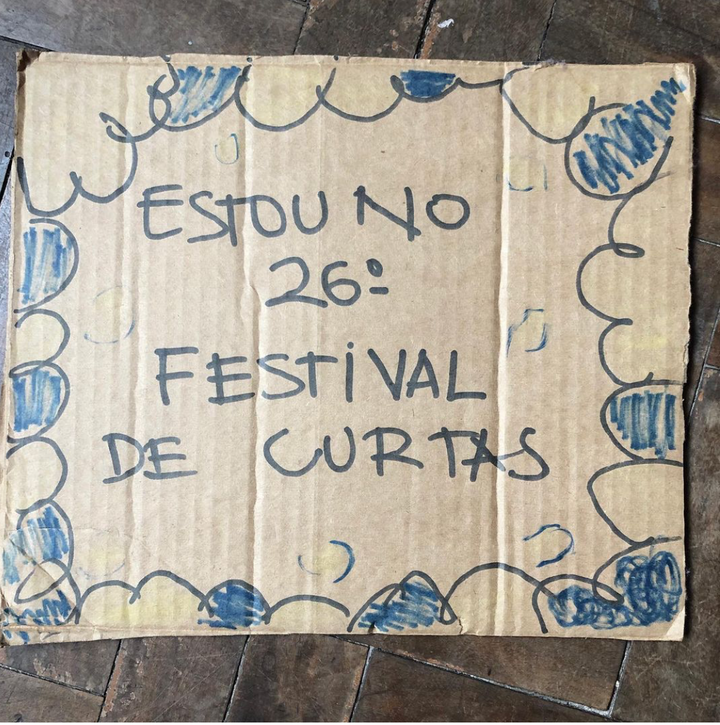 ESTOU NO
26º
FESTiVAL
DE CURTAS